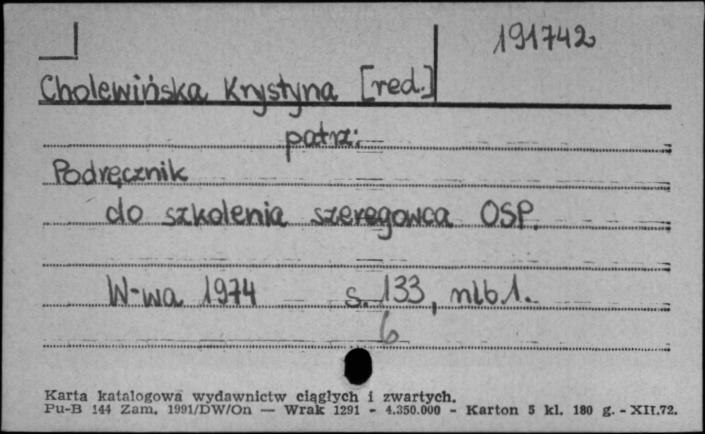 191742
Cholewińska Krystyna [red.]
patrz:
Podręcznik
do szkolenia szeregowca OSP.
W-wa 1974 s. 133, nlb 1.
6
Karta katalogowa wydawnictw ciągłych i zwartych.
Pu-B 144 Zam. 1991/DW/On — Wrak 1291 - 4.350.000 - Karton 5 kl. 180 g. - XII.72.